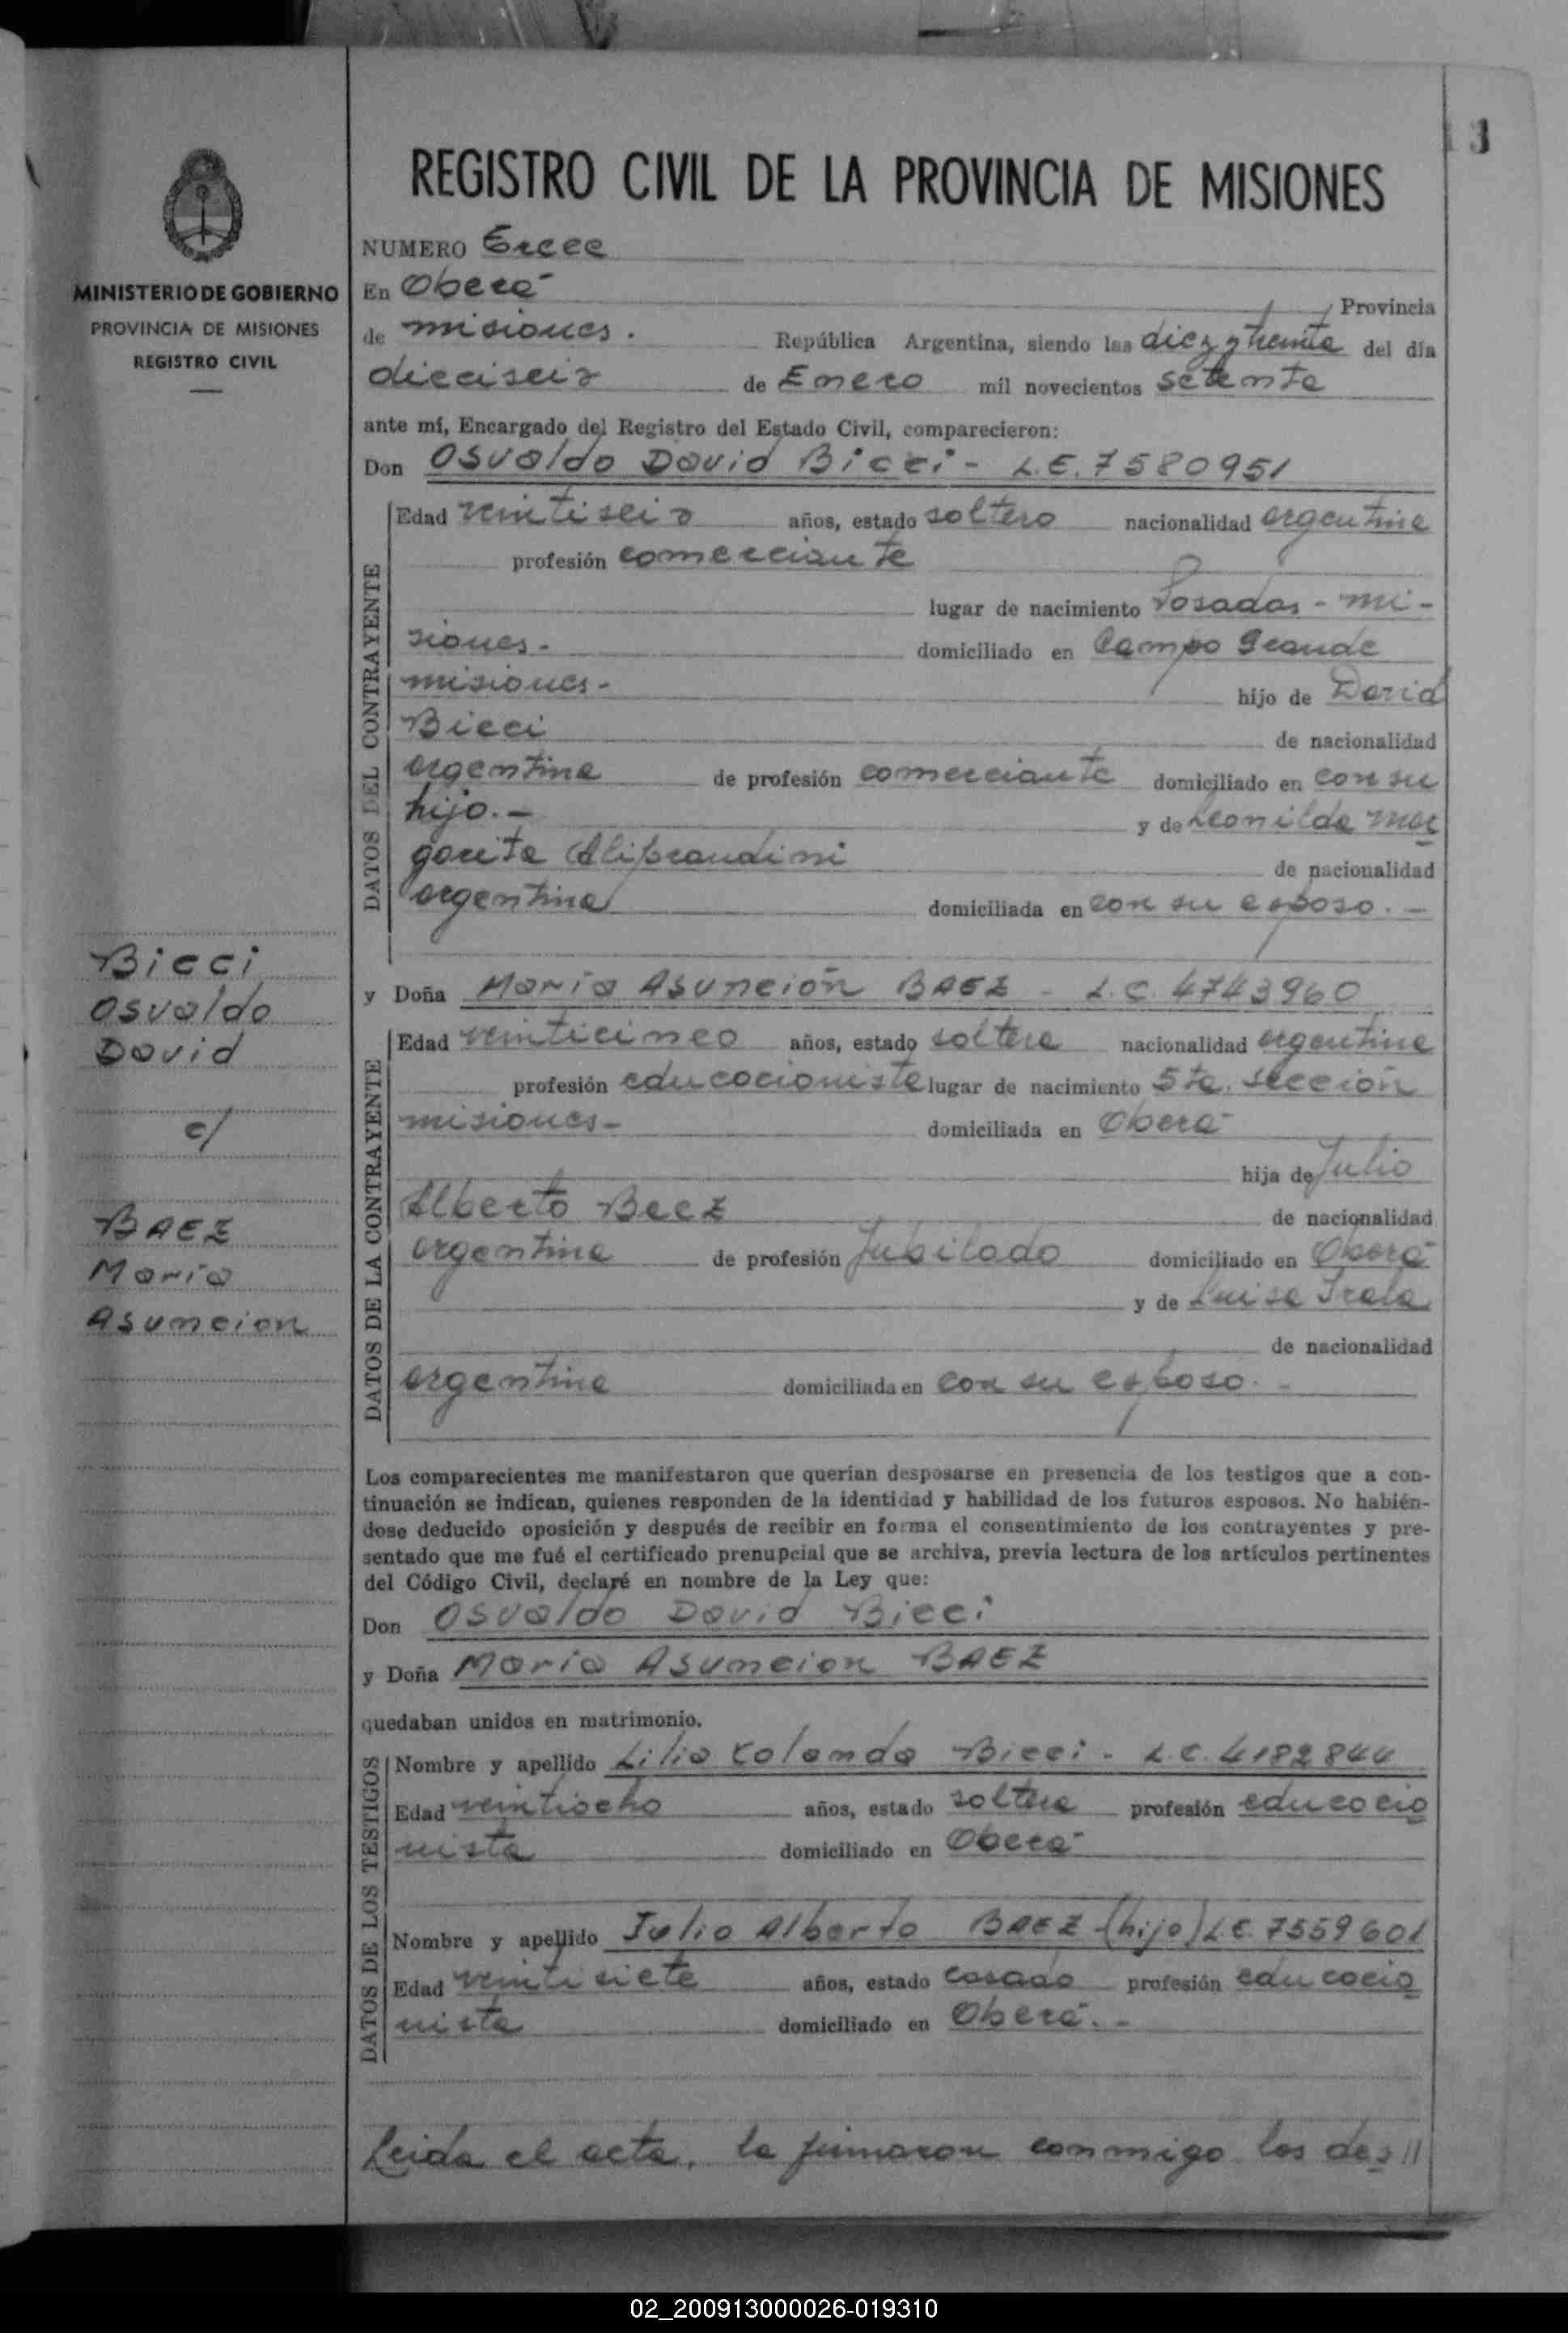 13
REGISTRO CIVIL DE LA PROVINCIA DE MISIONES
MINISTERIO DE GOBIERNO
PROVINCIA DE MISIONES
REGISTRO CIVIL
NUMERO Trece
En Oberá Provincia
de misiones. República Argentina, siendo las diez y treinta del día
dieciseis de Enero mil novecientos setenta
ante mí, Encargado del Registro del Estado Civil, comparecieron:
Don Osvaldo David Bicci - L.E. 7580951
DATOS DEL CONTRAYENTE
Edad veintiseis años, estado soltero nacionalidad argentina
profesión comerciante
lugar de nacimiento Posadas - mi-
siones. domiciliado en Campo Grande
misiones- hijo de David
Bicci de nacionalidad
argentina de profesión comerciante domiciliado en con su
hijo. - y de Leonilda mar
garita Aliprandini de nacionalidad
argentina domiciliada en con su esposo. -
Bicci
Osvaldo
David
c/
BAEZ
Maria
Asuncion
y Doña María Asunción BAEZ - L.C. 4743960
DATOS DE LA CONTRAYENTE
Edad veinticinco años, estado soltera nacionalidad argentina
profesión educacionista lugar de nacimiento 5ta. sección
misiones- domiciliada en Oberá
hija de Julio
Alberto Baez de nacionalidad
argentina de profesión Jubilado domiciliado en Oberá
y de Luisa Irala
de nacionalidad
argentina domiciliada en con su esposo. -
Los comparecientes me manifestaron que querían desposarse en presencia de los testigos que a con-
tinuación se indican, quienes responden de la identidad y habilidad de los futuros esposos. No habién-
dose deducido oposición y después de recibir en forma el consentimiento de los contrayentes y pre-
sentado que me fué el certificado prenupcial que se archiva, previa lectura de los artículos pertinentes
del Código Civil, declaré en nombre de la Ley que:
Don Osvaldo David Bicci
y Doña María Asuncion BAEZ
quedaban unidos en matrimonio.
DATOS DE LOS TESTIGOS
Nombre y apellido Lilia Yolanda Bicci - L.C. 4182844
Edad veintiocho años, estado soltera profesión educacio
nista domiciliado en Oberá
Nombre y apellido Julio Alberto BAEZ (hijo) L.E. 7559601
Edad veintisiete años, estado casado profesión educacio
nista domiciliado en Oberá. -
Leida el acta, la firmaron conmigo los des//
02_200913000026-019310